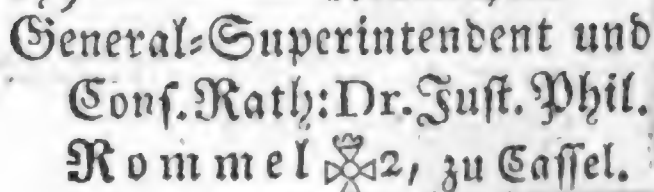 General-Superintendent und
Cons. Rath: Dr. Just. Phil.
Rommel 2, zu Cassel.